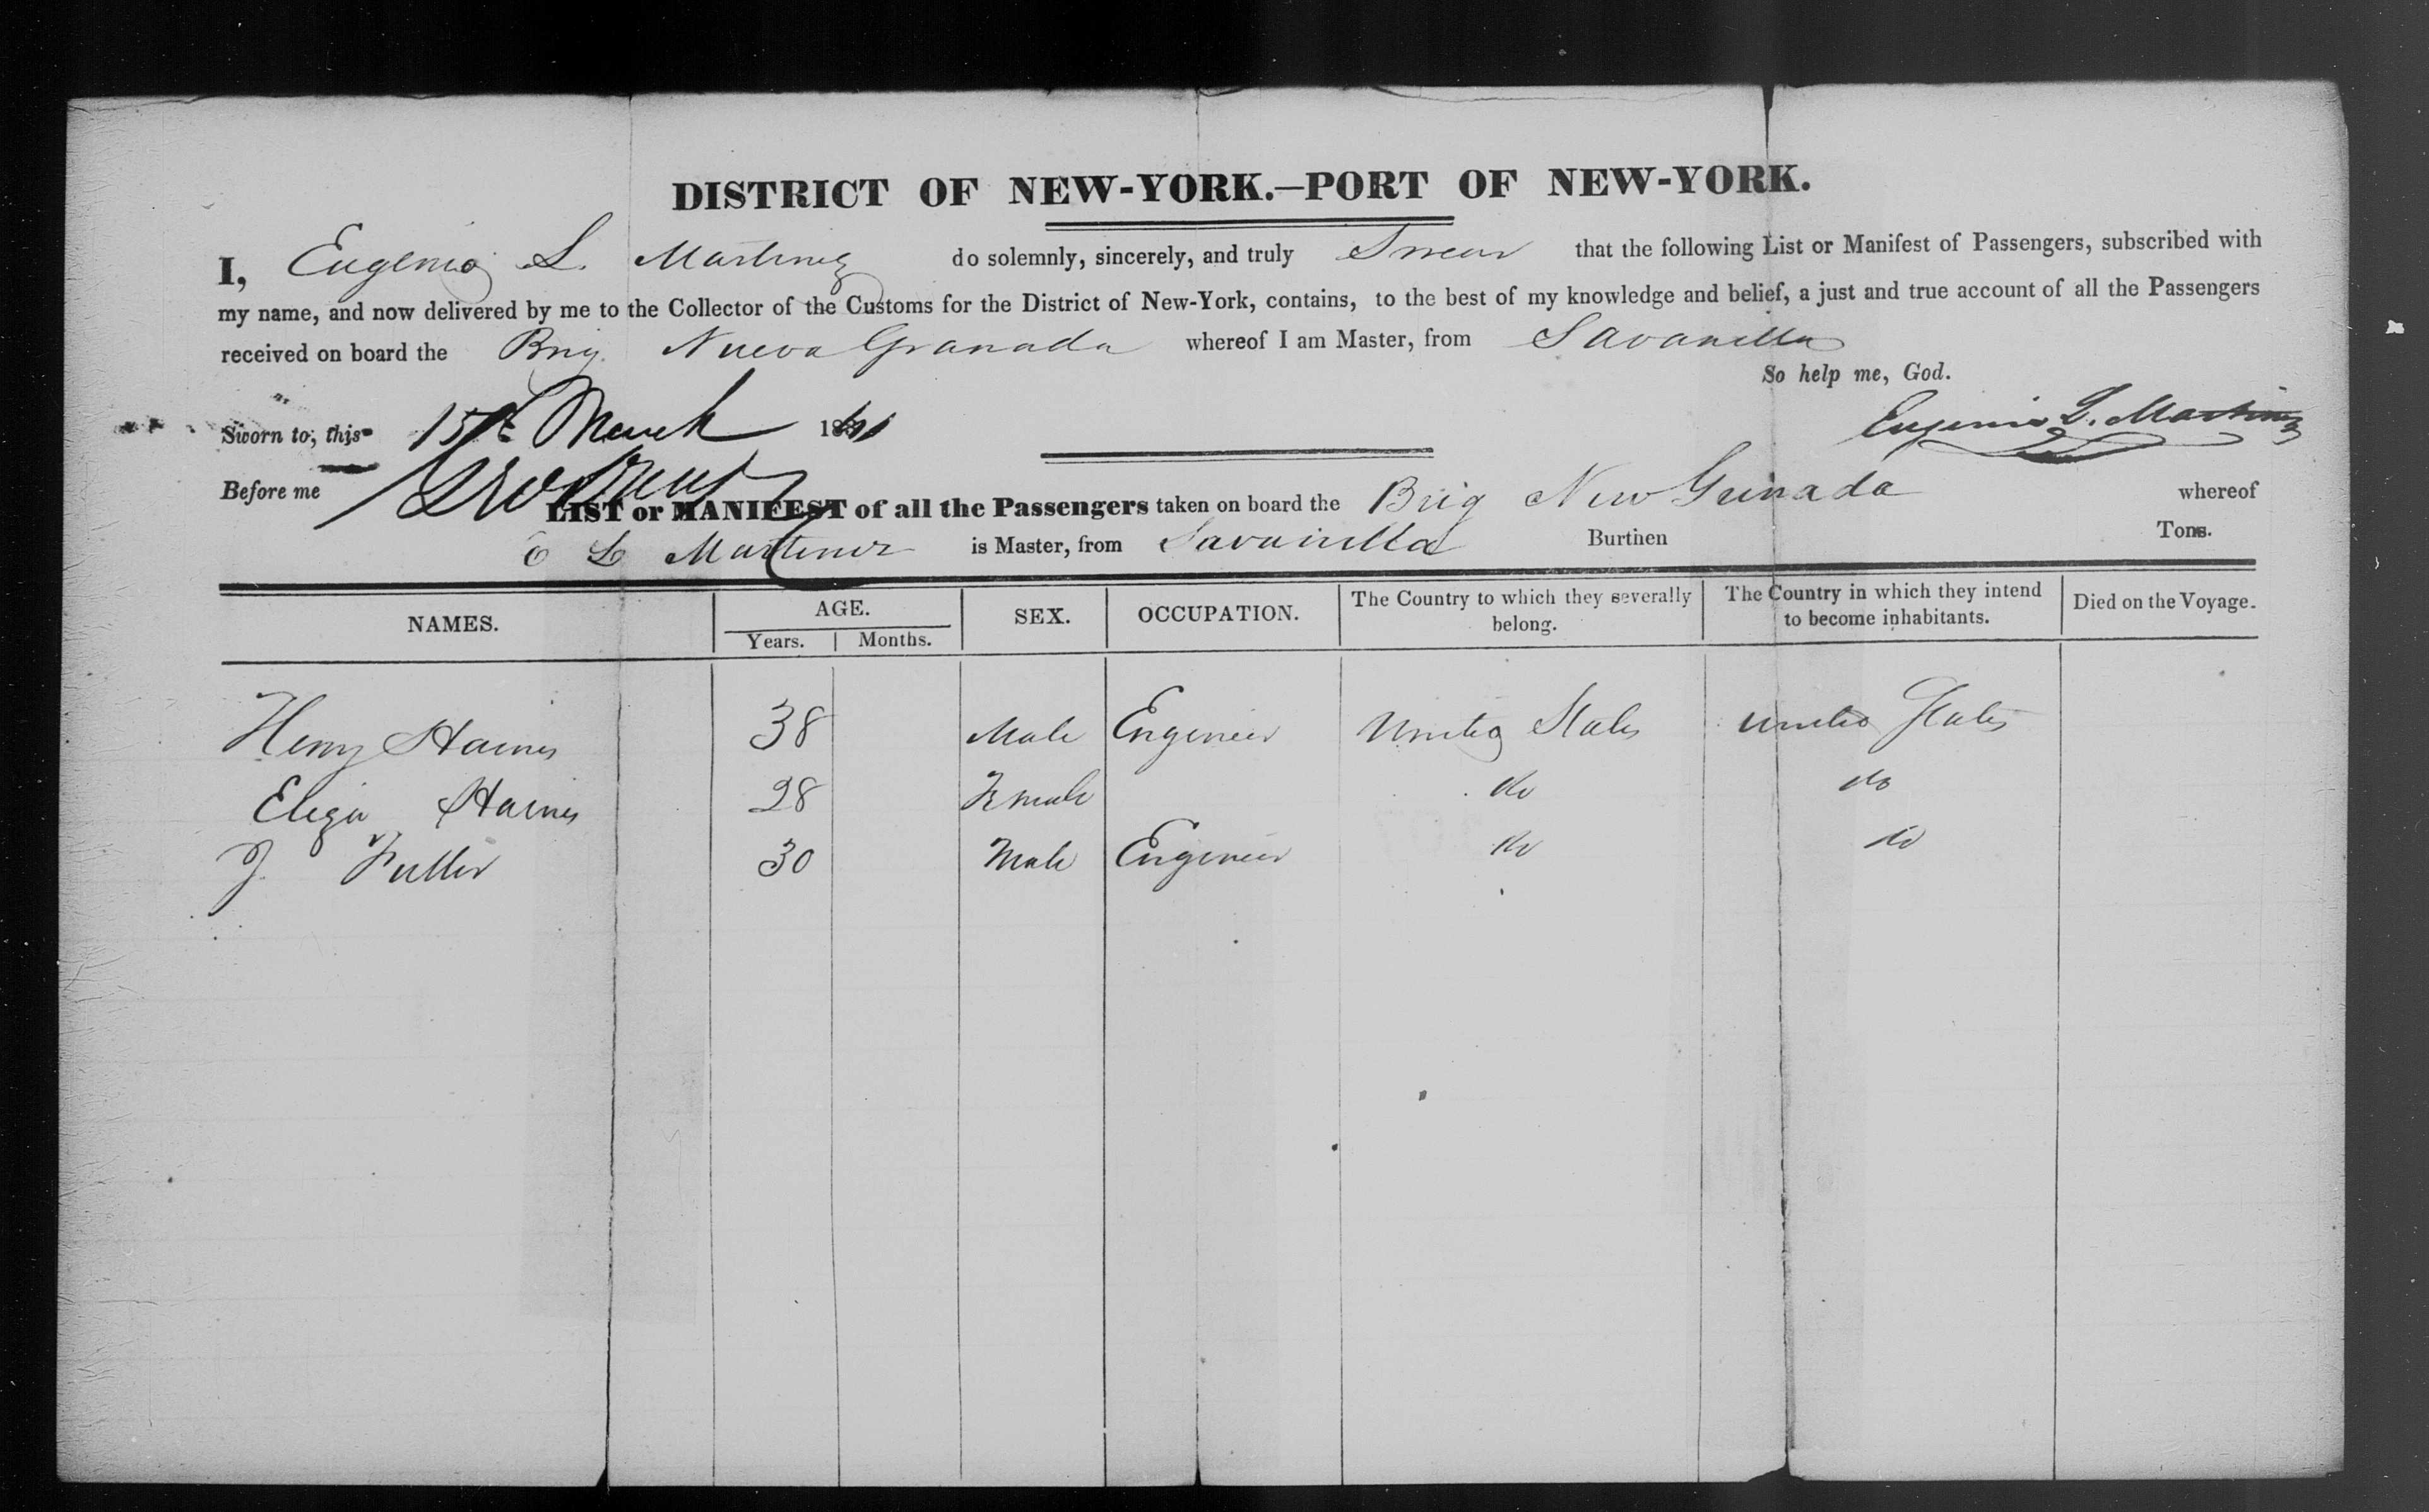 DISTRICT OF NEW-YORK.—PORT OF NEW-YORK.
I, Eugenio L. Martinez do solemnly, sincerely, and truly Swear that the following List or Manifest of Passengers, subscribed with
my name, and now delivered by me to the Collector of the Customs for the District of New-York, contains, to the best of my knowledge and belief, a just and true account of all the Passengers
received on board the Brig Nueva Granada whereof I am Master, from Savanilla
So help me, God.
Sworn to, this 15th March 1841 Eugenio L. Martinez
Before me
LIST or MANIFEST of all the Passengers taken on board the Brig New Grenada whereof
E L Martinez is Master, from Savanilla Burthen Tons.
NAMES. AGE. SEX. OCCUPATION. The Country to which they severally belong. The Country in which they intend to become inhabitants. Died on the Voyage.
Years. Months.
Henry Haines 38 Male Engineer United States United States
Eliza Haines 28 Female do do
J. Fuller 30 Male Engineer do do